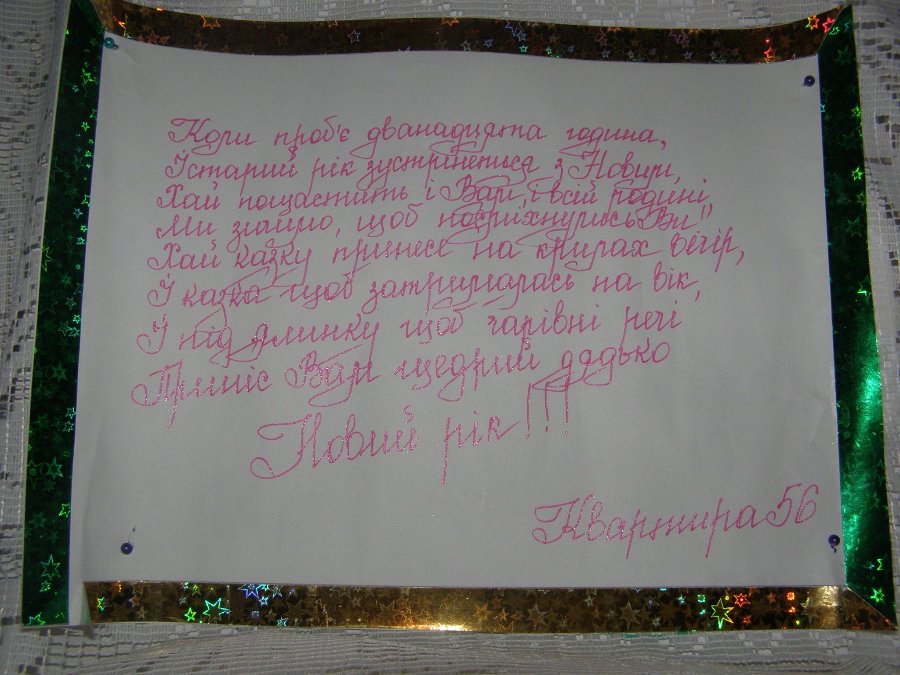 Коли проб'є дванадцята година,
І старий рік зустрінеться з Новим,
Хай пощастить і Вам, і всій родині,
Ми знаймо, щоб посміхнулись Ви!!
Хай казку принесе на крилах вечір,
І казка щоб затрималась на вік,
І під ялинку щоб чарівні речі
Приніс Вам щедрий дядько
Новий рік!!!
Квартира 56